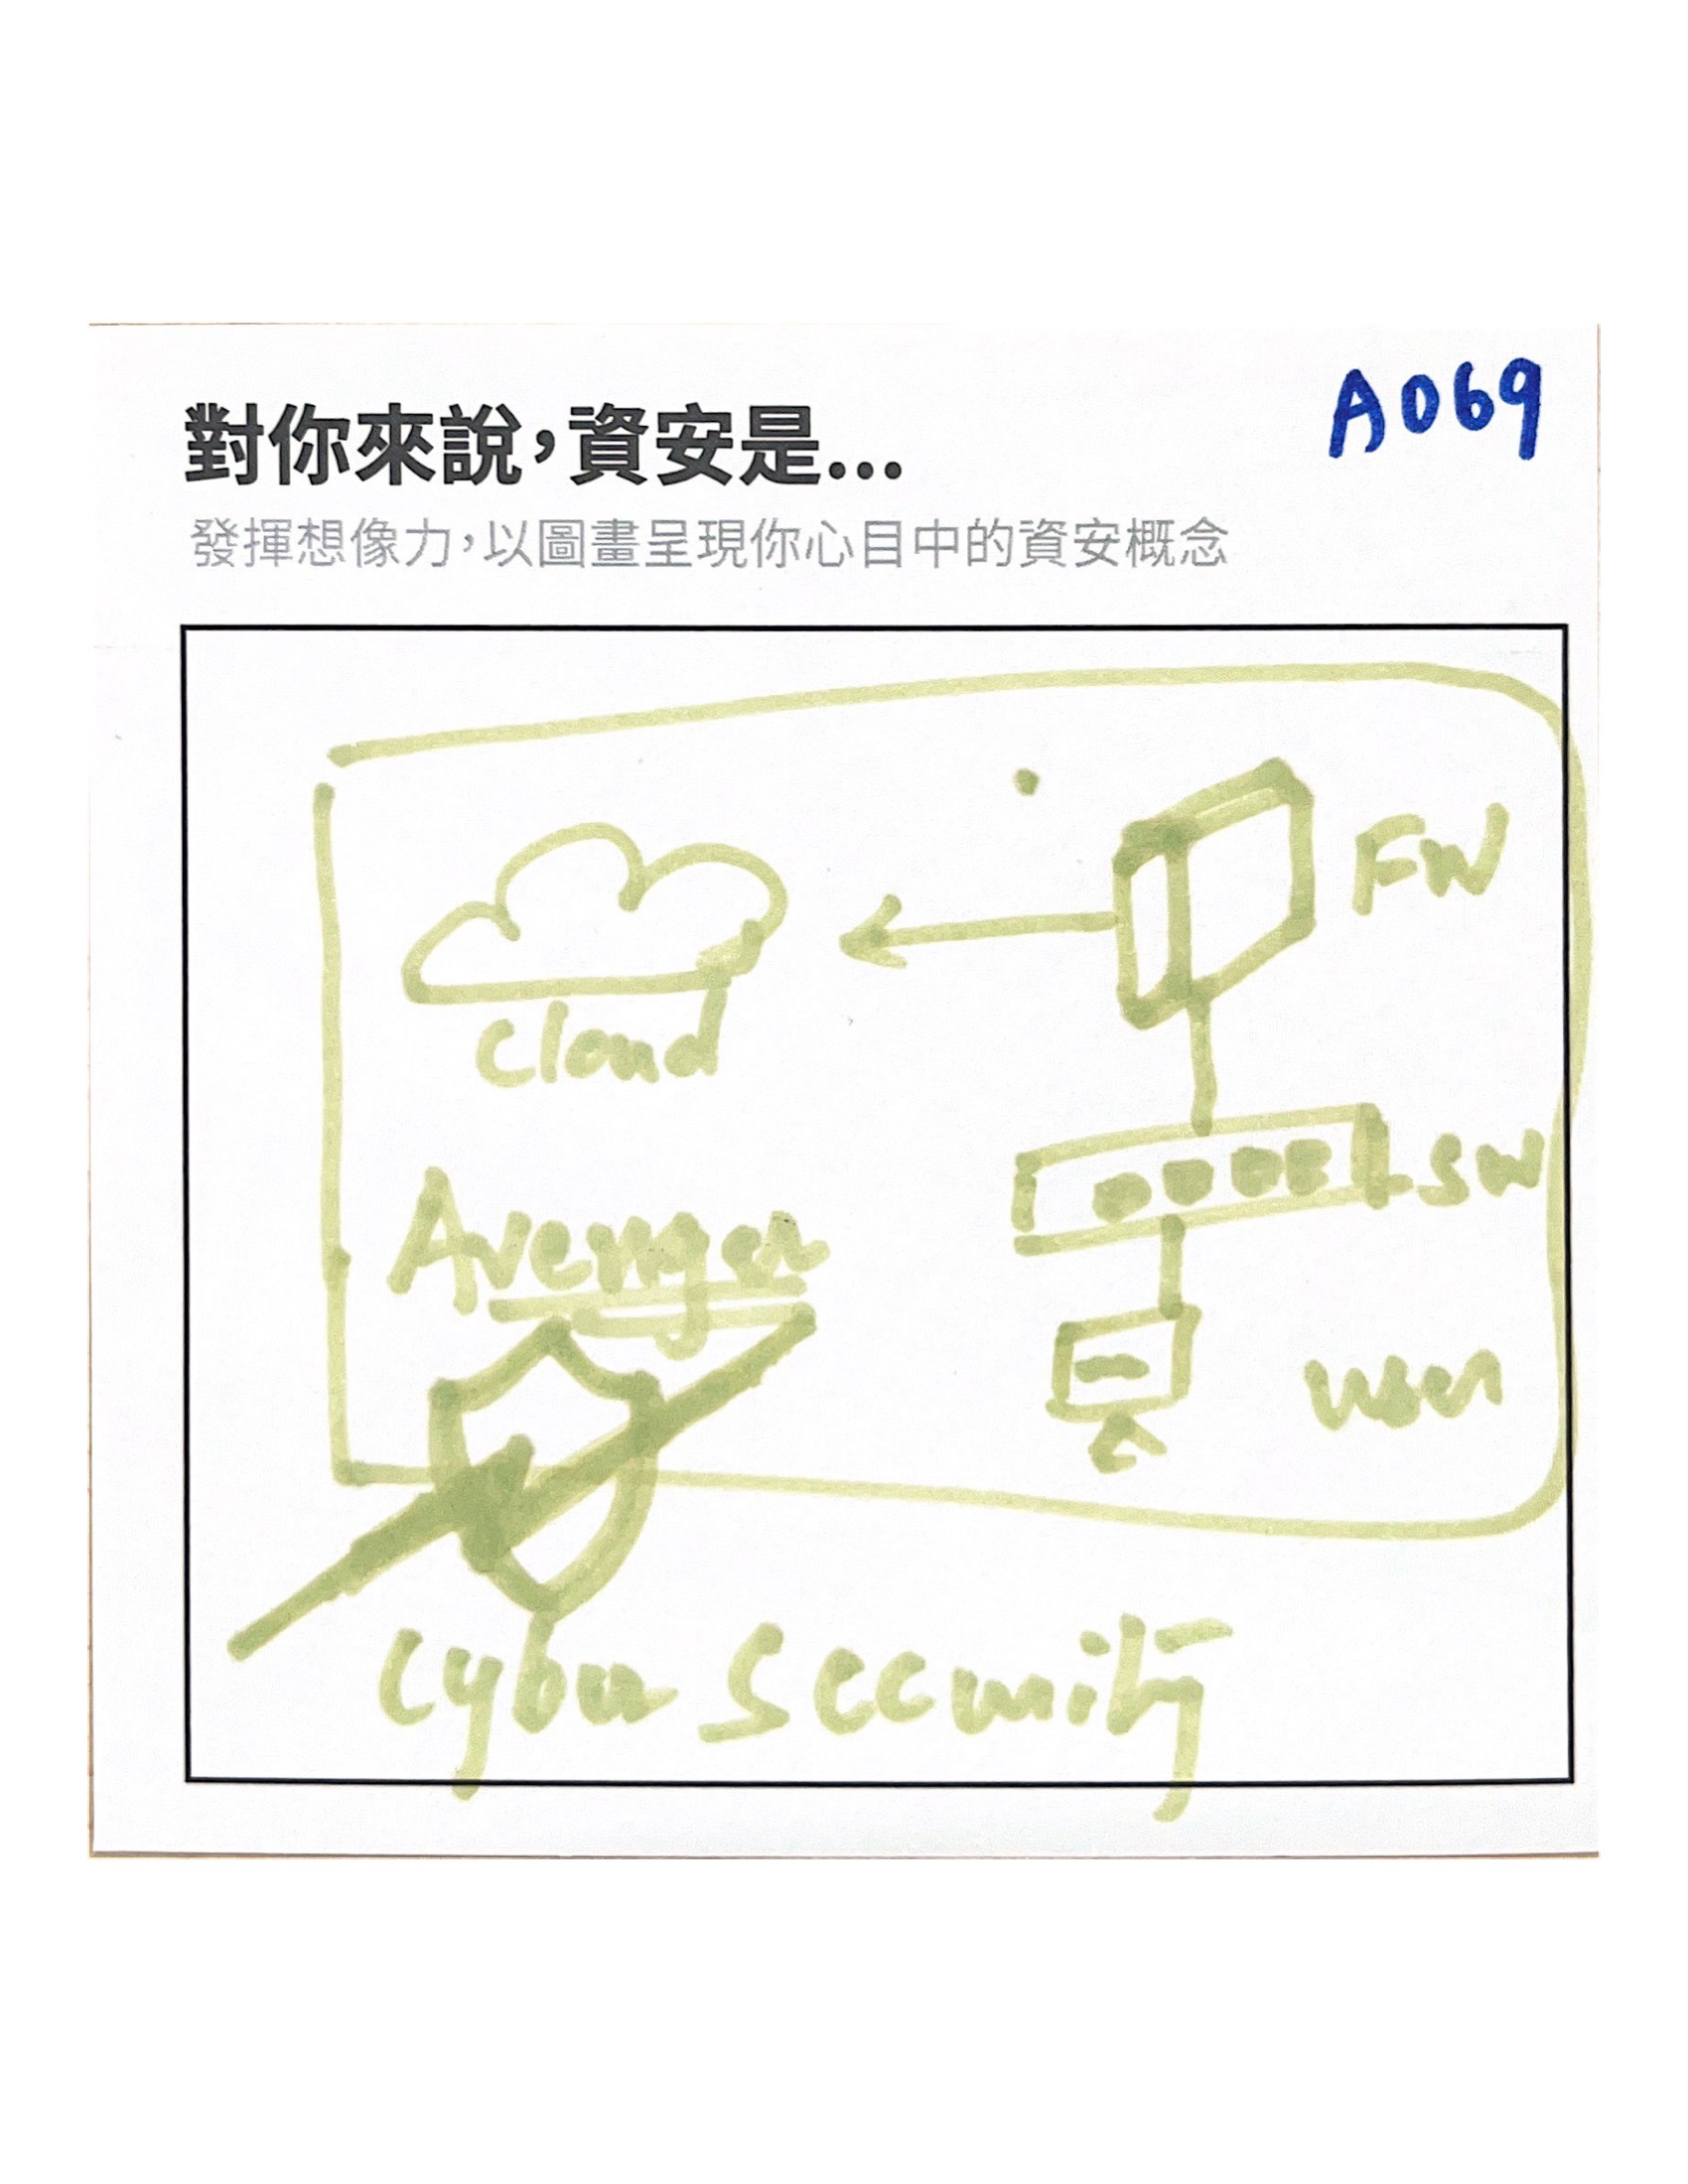 A069
對你來說，資安是...
發揮想像力，以圖畫呈現你心目中的資安概念
FW
Cloud
SW
Avenger
user
Cyber Security